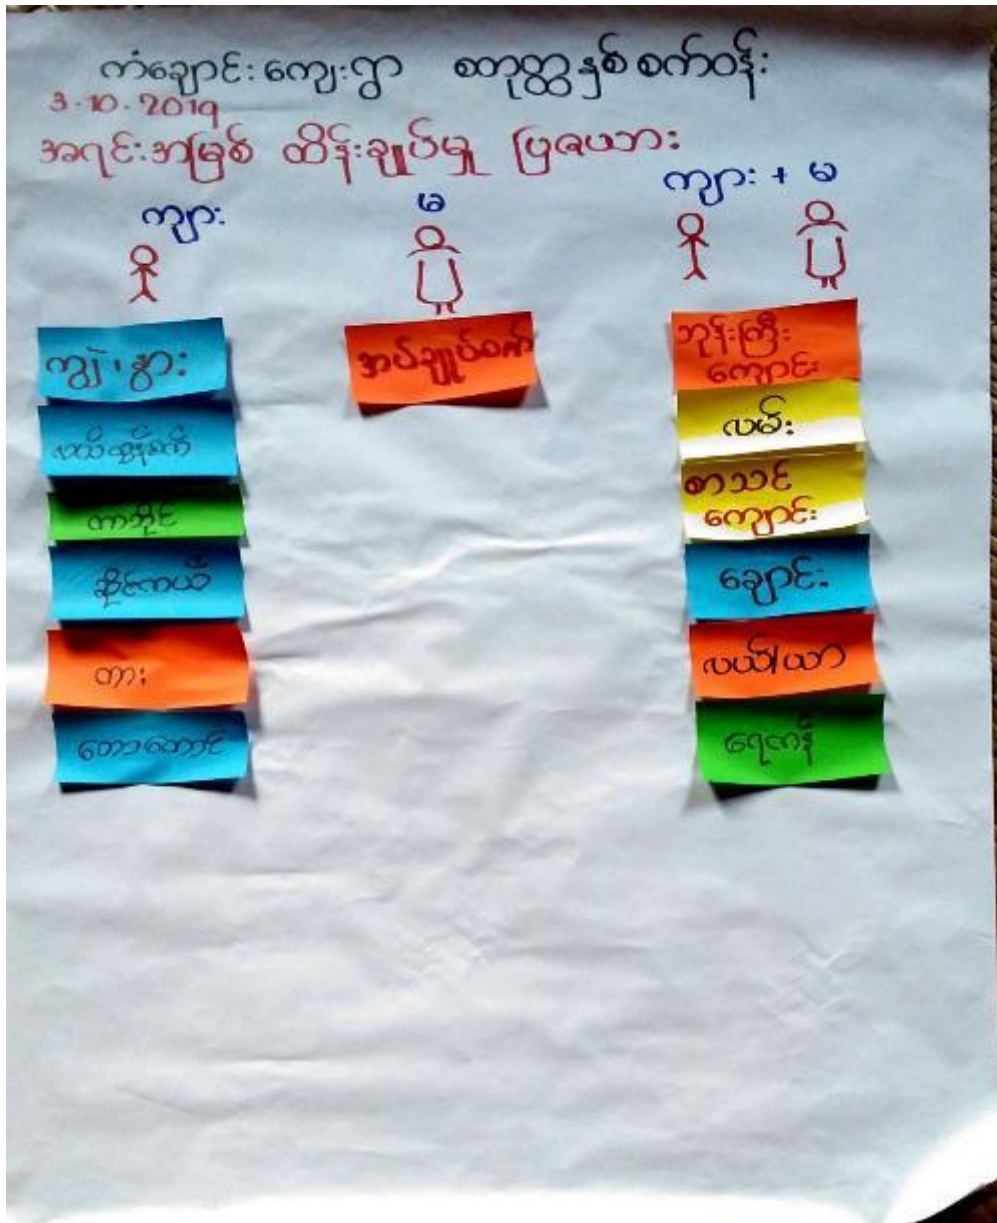 ကံချောင်းကျေးရွာ စတုတ္ထနှစ်စက်ဝန်း
3.10.2019
အရင်းအမြစ် ထိန်းချုပ်မှု ပြဇယား
ကျား
မ
ကျား + မ
ကျွဲ၊နွား
လယ်ထွန်စက်
ဆိုင်ကယ်
ကား
တောတောင်
အပ်ချုပ်စက်
ဘုန်းကြီး
ကျောင်း
လမ်း
စာသင်
ကျောင်း
ချောင်း
လယ်/ယာ
ရေကန်